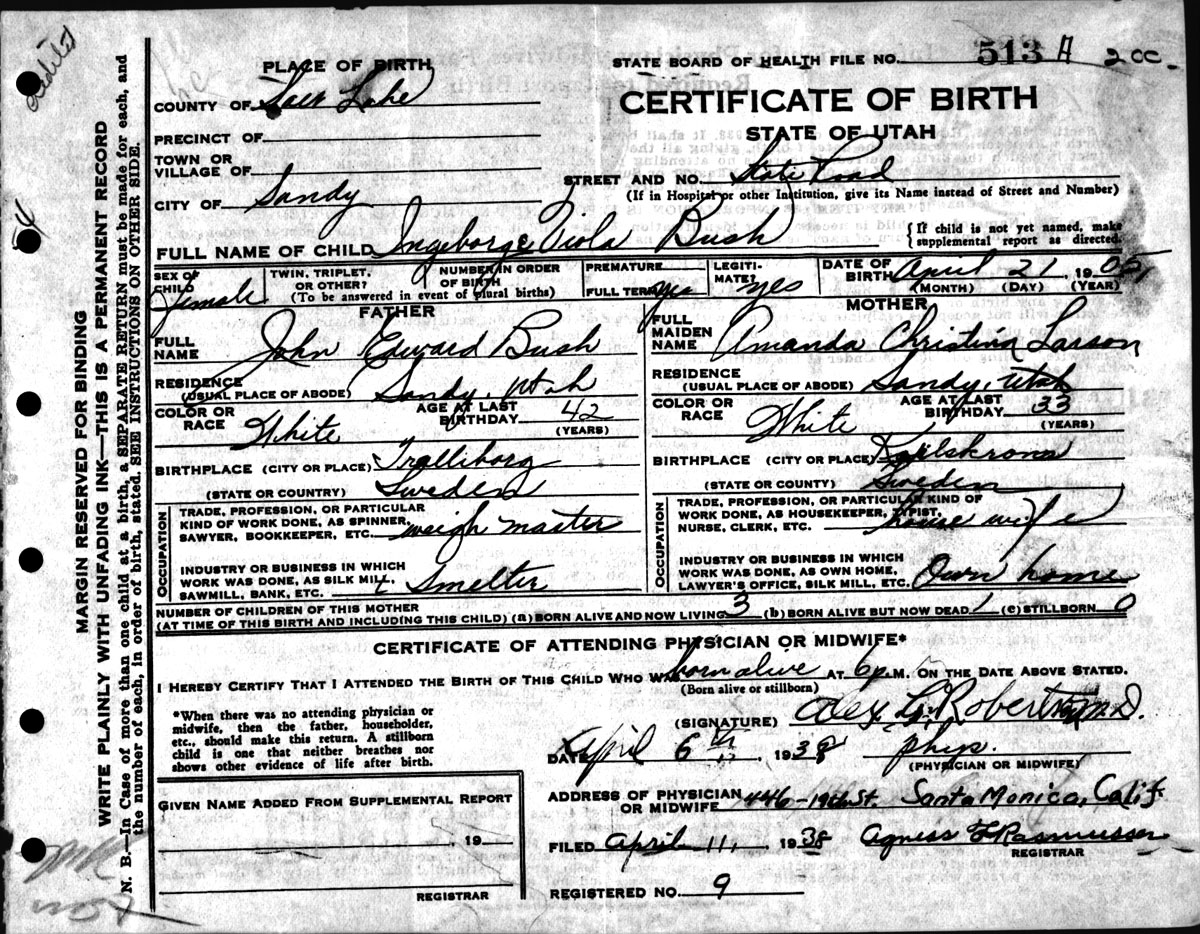 credited
PLACE OF BIRTH
STATE BOARD OF HEALTH FILE NO. 513 A 2 cc
COUNTY OF Salt Lake
CERTIFICATE OF BIRTH
PRECINCT OF
STATE OF UTAH
TOWN OR
VILLAGE OF
STREET AND NO. State Road
(If in Hospital or other Institution, give its Name instead of Street and Number)
CITY OF Sandy
FULL NAME OF CHILD Ingeborge Viola Bush
{If child is not yet named, make
supplemental report as directed.
SEX OF
CHILD Female
TWIN, TRIPLET,
OR OTHER?
NUMBER IN ORDER
OF BIRTH
(To be answered in event of plural births)
PREMATURE
FULL TERM yes
LEGITI-
MATE? yes
DATE OF
BIRTH April 21, 1905
(MONTH) (DAY) (YEAR)
FATHER
FULL
NAME John Edward Bush
RESIDENCE
(USUAL PLACE OF ABODE) Sandy, Utah
COLOR OR
RACE White
AGE AT LAST
BIRTHDAY 42
(YEARS)
BIRTHPLACE (CITY OR PLACE) Trelliborg
(STATE OR COUNTRY) Sweden
OCCUPATION
TRADE, PROFESSION, OR PARTICULAR
KIND OF WORK DONE, AS SPINNER,
SAWYER, BOOKKEEPER, ETC. weigh master
INDUSTRY OR BUSINESS IN WHICH
WORK WAS DONE, AS SILK MILL,
SAWMILL, BANK, ETC. Smelter
MOTHER
FULL
MAIDEN
NAME Amanda Christina Larson
RESIDENCE
(USUAL PLACE OF ABODE) Sandy, Utah
COLOR OR
RACE White
AGE AT LAST
BIRTHDAY 33
(YEARS)
BIRTHPLACE (CITY OR PLACE) Karlskrona
(STATE OR COUNTRY) Sweden
OCCUPATION
TRADE, PROFESSION, OR PARTICULAR KIND OF
WORK DONE, AS HOUSEKEEPER, TYPIST,
NURSE, CLERK, ETC. house wife
INDUSTRY OR BUSINESS IN WHICH
WORK WAS DONE, AS OWN HOME,
LAWYER'S OFFICE, SILK MILL, ETC. Own home
NUMBER OF CHILDREN OF THIS MOTHER
(AT TIME OF THIS BIRTH AND INCLUDING THIS CHILD) (a) BORN ALIVE AND NOW LIVING 3 (b) BORN ALIVE BUT NOW DEAD 1 (c) STILLBORN 0
CERTIFICATE OF ATTENDING PHYSICIAN OR MIDWIFE*
I HEREBY CERTIFY THAT I ATTENDED THE BIRTH OF THIS CHILD WHO WAS born alive AT 6 p. M. ON THE DATE ABOVE STATED.
(Born alive or stillborn)
*When there was no attending physician or
midwife, then the father, householder,
etc., should make this return. A stillborn
child is one that neither breathes nor
shows other evidence of life after birth.
(SIGNATURE) M.D.
DATE April 6th 1938 phys.
(PHYSICIAN OR MIDWIFE)
ADDRESS OF PHYSICIAN
OR MIDWIFE 446-19th St. Santa Monica, Calif
GIVEN NAME ADDED FROM SUPPLEMENTAL REPORT
, 19
REGISTRAR
FILED April 11, 1938 Agness F Rasmussen
REGISTRAR
REGISTERED NO. 9
MARGIN RESERVED FOR BINDING
WRITE PLAINLY WITH UNFADING INK—THIS IS A PERMANENT RECORD
N. B.—In Case of more than one child at a birth, a SEPARATE RETURN must be made for each, and
the number of each, in order of birth, stated. SEE INSTRUCTIONS ON OTHER SIDE.